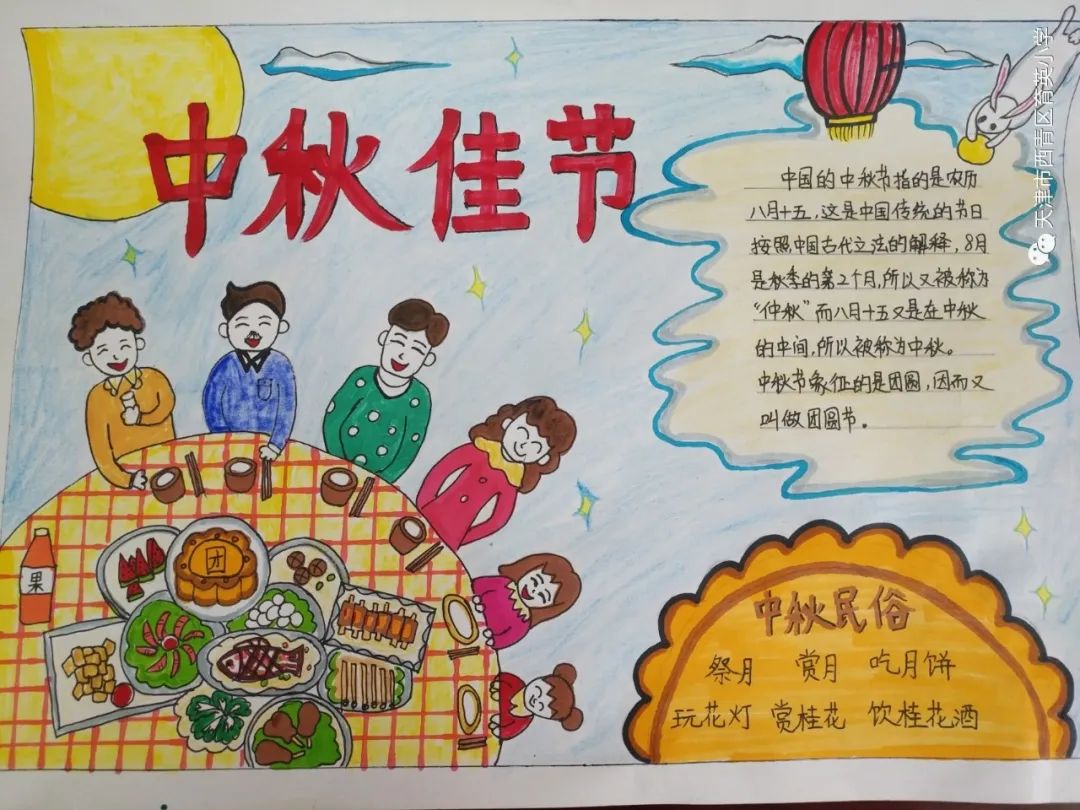 中秋佳节
中国的中秋节指的是农历
八月十五，这是中国传统的节日
按照中国古代立法的解释，8月
是秋季的第2个月，所以又被称为
“仲秋”而八月十五又是在中秋
的中间，所以被称为中秋。
中秋节象征的是团圆，因而又
叫做团圆节。
团
果
中秋民俗
祭月 赏月 吃月饼
玩花灯 赏桂花 饮桂花酒
天津市西青区育英小学